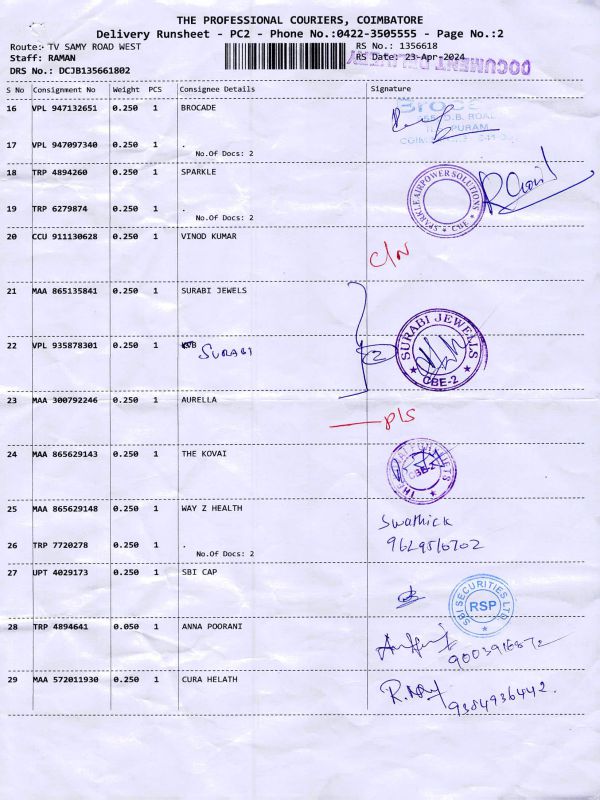 THE PROFESSIONAL COURIERS, COIMBATORE
Delivery Runsheet - PC2 - Phone No.:0422-3505555 - Page No.:2
Route: TV SAMY ROAD WEST RS No.: 1356618
Staff: RAMAN RS Date: 23-Apr-2024
DRS No.: DCJB135661802
S No Consignment No Weight PCS Consignee Details Signature
16 VPL 947132651 0.250 1 BROCADE
17 VPL 947097340 0.250 1 .
No.Of Docs: 2
18 TRP 4894260 0.250 1 SPARKLE
SPARKLE AIRPOWER SOLUTIONS CBE
19 TRP 6279874 0.250 1 .
No.Of Docs: 2
20 CCU 911130628 0.250 1 VINOD KUMAR
C/N
21 MAA 865135841 0.250 1 SURABI JEWELS
22 VPL 935878301 0.250 1 SURABI
2
SURABI JEWELS CBE-2
23 MAA 300792246 0.250 1 AURELLA
P/S
24 MAA 865629143 0.250 1 THE KOVAI
CBE-2
25 MAA 865629148 0.250 1 WAY Z HEALTH
Swathick
26 TRP 7720278 0.250 1 .
No.Of Docs: 2
27 UPT 4029173 0.250 1 SBI CAP
SBI SECURITIES LTD RSP
28 TRP 4894641 0.050 1 ANNA POORANI
29 MAA 572011930 0.250 1 CURA HELATH
9384936442.